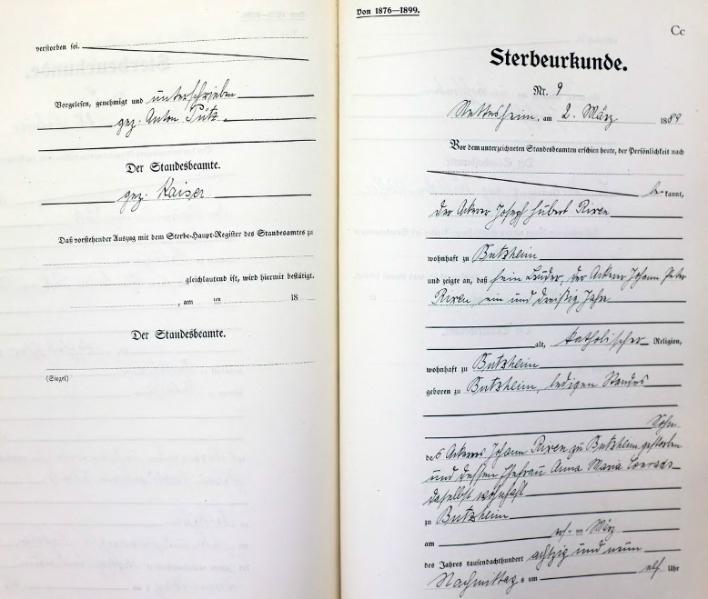 verstorben sei.
Vorgelesen, genehmigt und unterschrieben
gez. Anton Pütz
Der Standesbeamte.
gez. Kaiser
Daß vorstehender Auszug mit dem Sterbe-Haupt-Register des Standesamtes zu
gleichlautend ist, wird hiermit bestätigt.
, am ten 18
Der Standesbeamte.
(Siegel)
Von 1876—1899.
Cc
Sterbeurkunde.
Nr. 9
Nettesheim, am 2. März 1889
Vor dem unterzeichneten Standesbeamten erschien heute, der Persönlichkeit nach
be kannt,
der Ackerer Joseph Hubert Riren
wohnhaft zu Butzheim
und zeigte an, daß sein Bruder, der Ackerer Johann Peter
Riren, ein und dreißig Jahre
alt, katholischer Religion,
wohnhaft zu Butzheim
geboren zu Butzheim, ledigen Standes
Sohn
des Ackerers Johann Riren zu Butzheim gestorben
und dessen Ehefrau Anna Maria Conrads
daselbst wohnhaft
zu Butzheim
am März
des Jahres tausendachthundert achtzig und neun
Nachmittags um elf Uhr